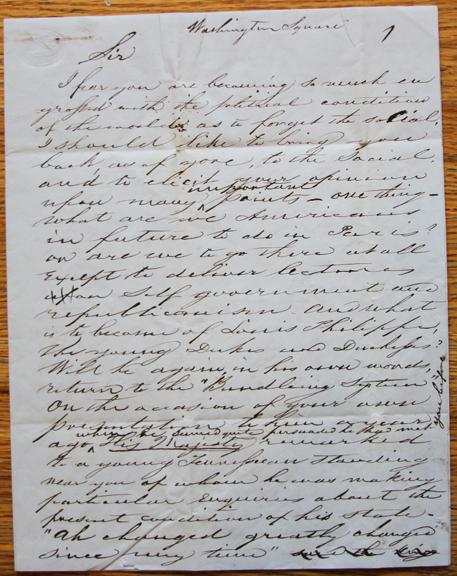 Washington Square
1
Sir
I fear you are becoming so much en
grossed with the political condition
of the world as to forget the social.
I should like to bring you
back as of yore, to the social,
and to elicit your opinion
important
upon many points - one thing -
what are we Americans
in future to do in Paris?
or are we to go there at all
except to deliver lectures
on self government and
republicanism. And what
is to become of Louis Philippe,
the young Dukes and Duchesses?
Will he again, in his own words,
return to the "Bundling System
On the occasion of your own
presentation to him a year
ago, when he
His Majesty remarked
to a young Tennessean standing
near you of whom he was making
particular enquiries about the
present condition of his state -
"Ah changed greatly changed
since my time"